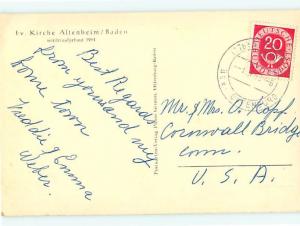 Ev. Kirche Altenheim/Baden
Best Regards
from you and my
home town
Freddie & Emma
Weber.
20
DEUTSCHE
BUNDESPOST
Mr. & Mrs. O. Kopf.
Cornwall Bridge
Conn.
U. S. A.